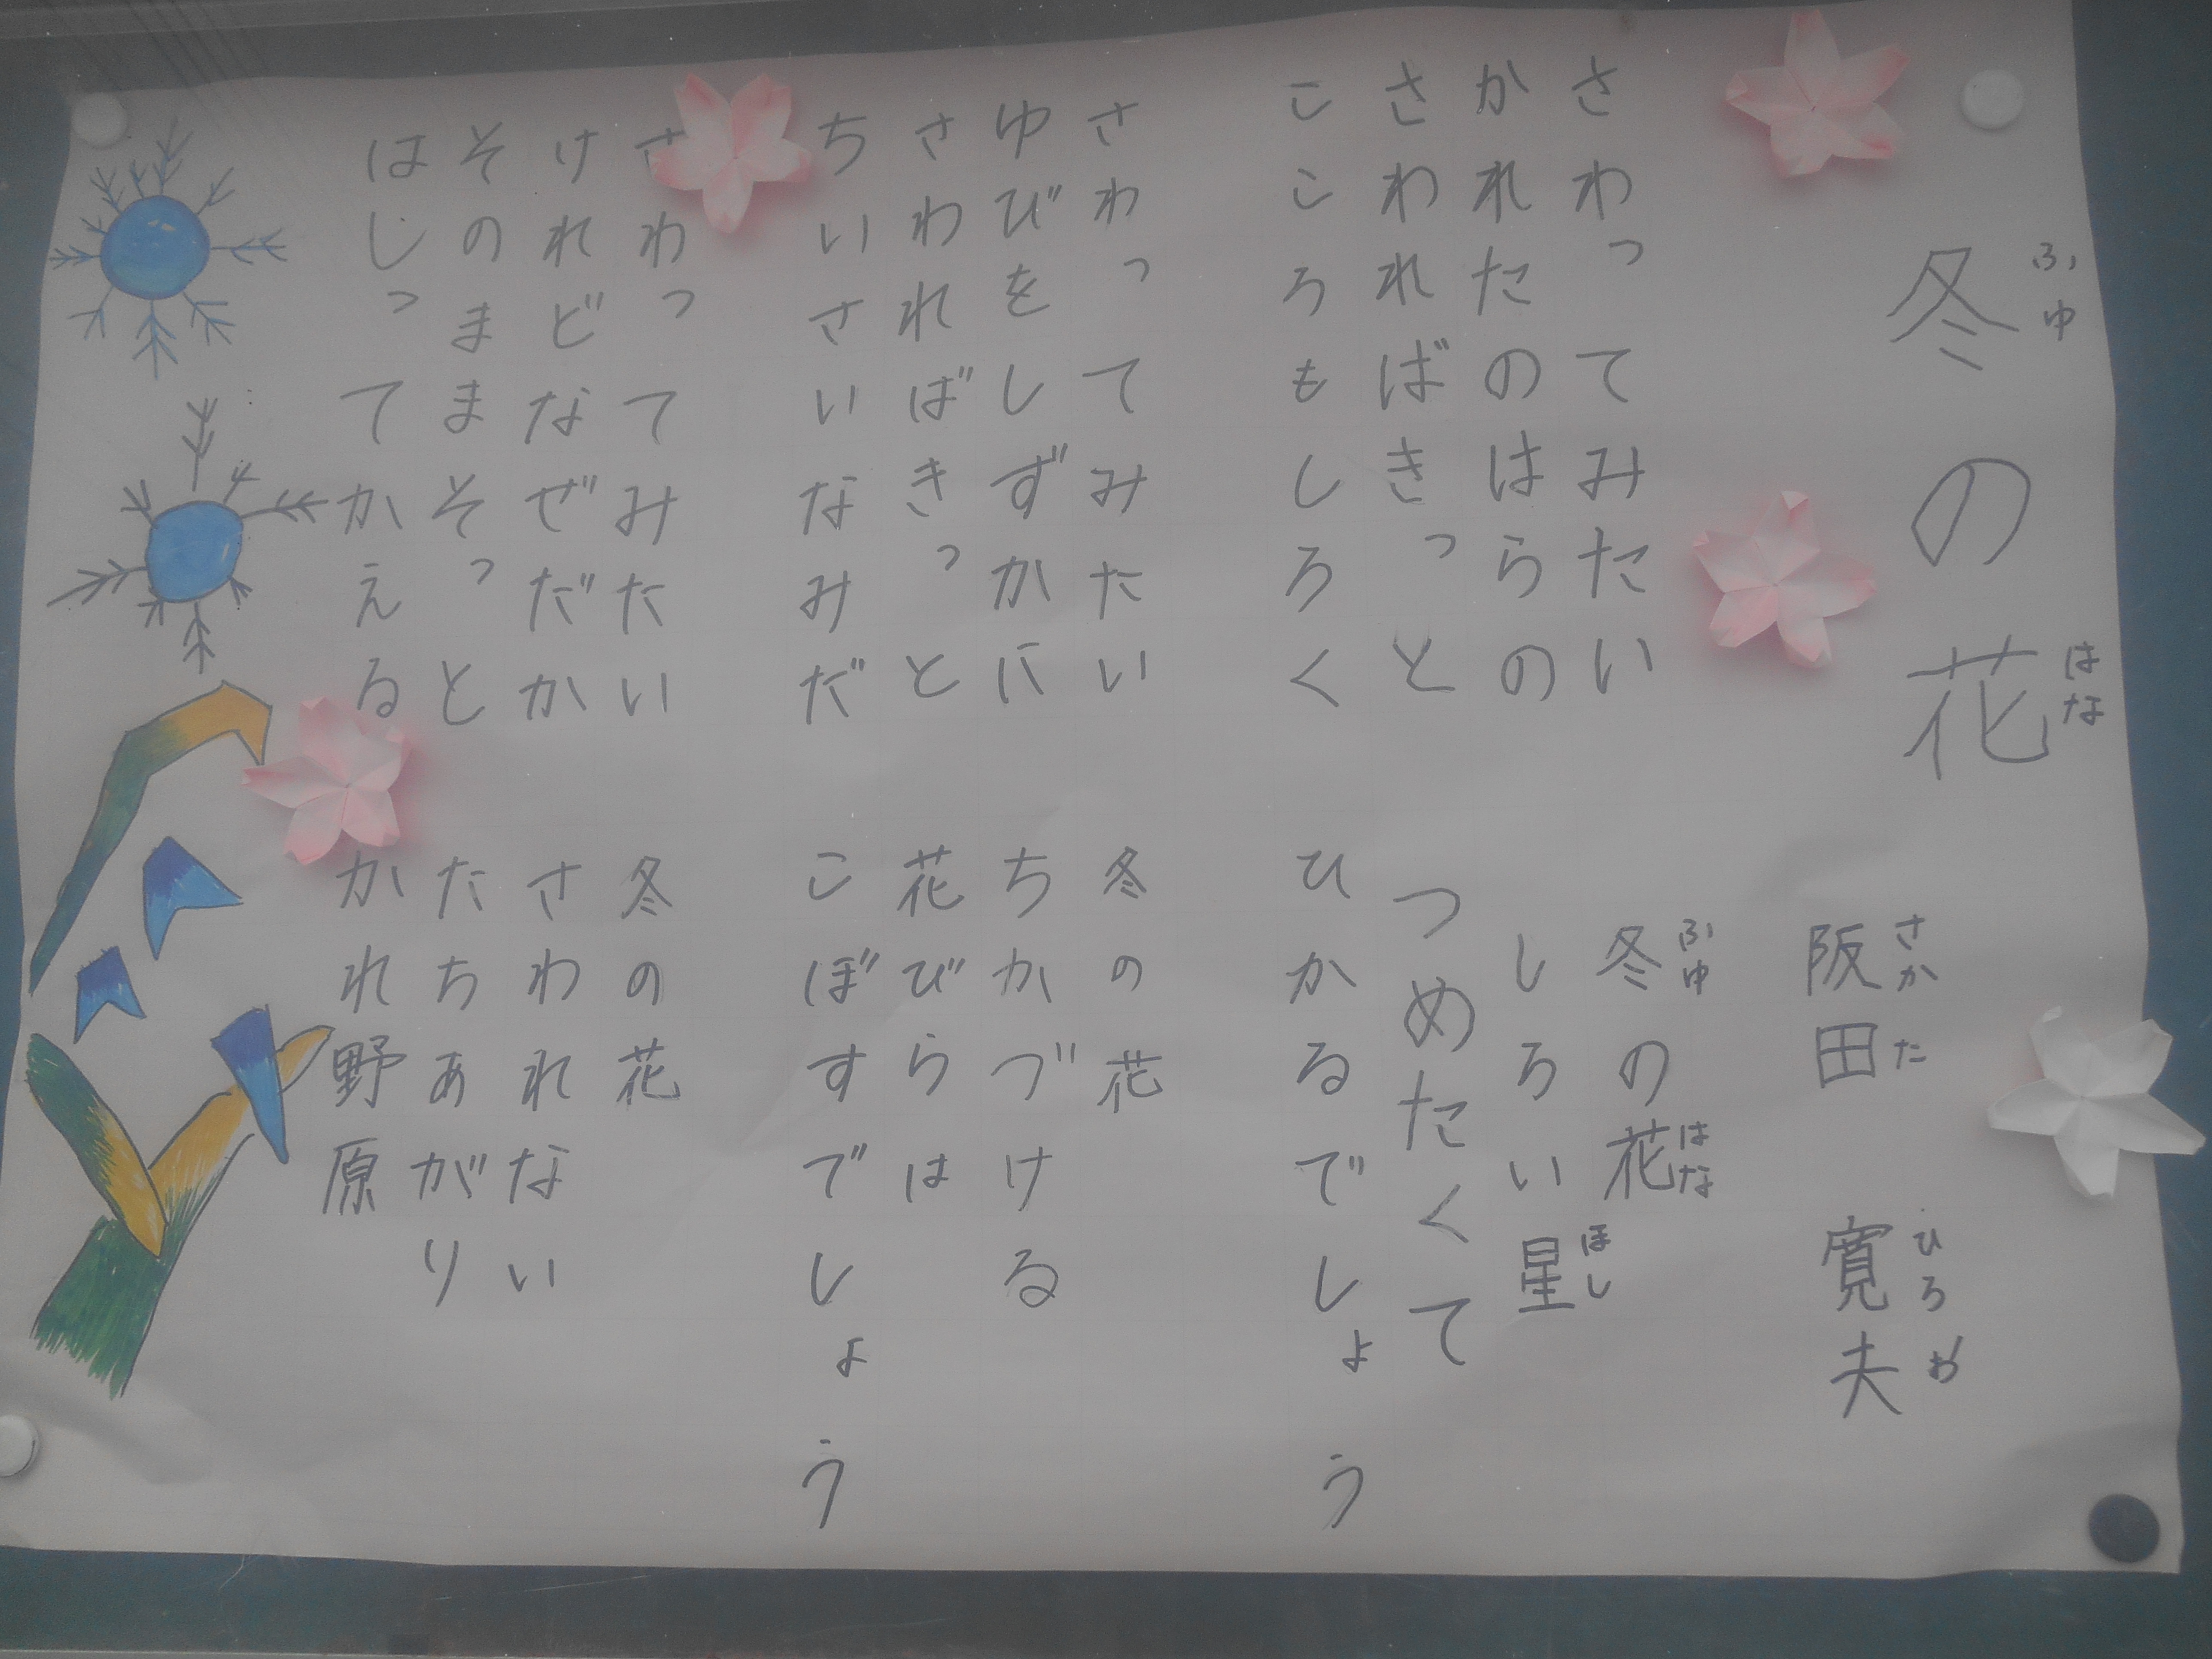 冬の花
ふゆ はな
阪田 寛夫
さかた ひろお
さわってみたい 冬の花
ふゆ はな
かれたのはらの しろい星
ほし
さわればきっと つめたくて
こころもしろく ひかるでしょう
さわってみたい 冬の花
ゆびをしずかに ちかづける
さわればきっと 花びらは
ちいさいなみだ こぼすでしょう
さわってみたい 冬の花
けれどなぜだか さわれない
そのままそっと たちあがり
はじってかえる かれ野原